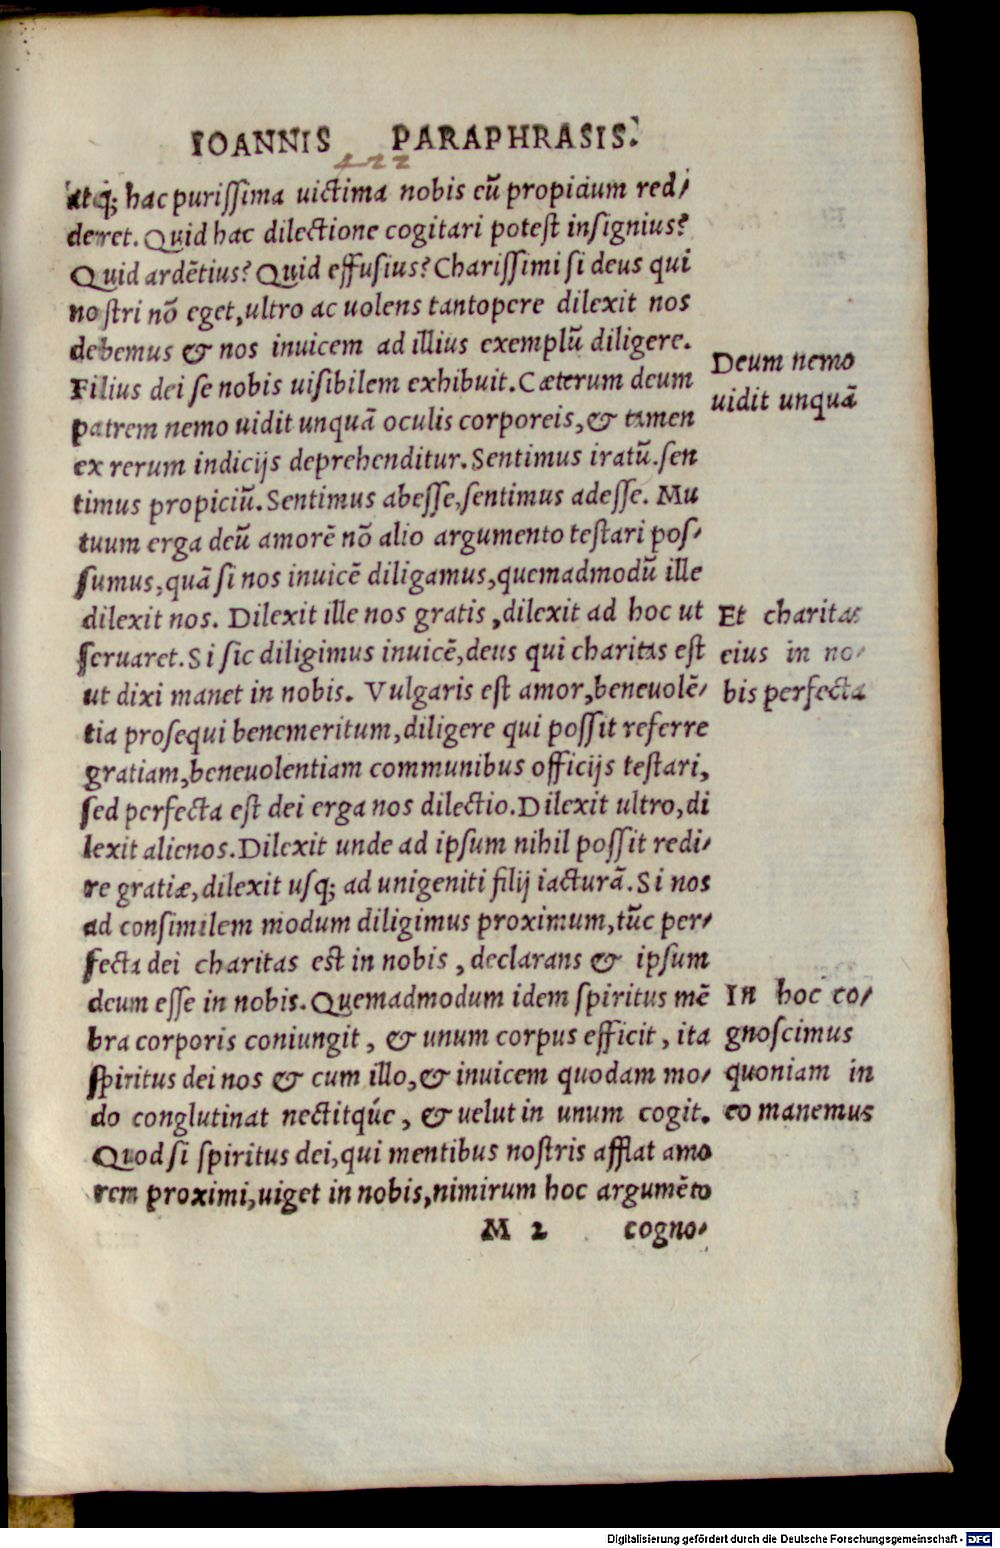 IOANNIS PARAPHRASIS.
422
atq; hac purissima uictima nobis eū propicium red/
deret. Quid hac dilectione cogitari potest insignius?
Quid ardētius? Quid effusius? Charissimi si deus qui
nostri nō eget, ultro ac uolens tantopere dilexit nos
debemus & nos inuicem ad illius exemplū diligere.
Filius dei se nobis uisibilem exhibuit. Cæterum deum
patrem nemo uidit unquā oculis corporeis, & tamen
ex rerum indicijs deprehenditur. Sentimus iratū. sen
timus propiciū. Sentimus abesse, sentimus adesse. Mu
tuum erga deū amorē nō alio argumento testari pos/
sumus, quā si nos inuicē diligamus, quemadmodū ille
dilexit nos. Dilexit ille nos gratis, dilexit ad hoc ut
seruaret. Si sic diligimus inuicē, deus qui charitas est
ut dixi manet in nobis. Vulgaris est amor, beneuolē/
tia prosequi benemeritum, diligere qui possit referre
gratiam, beneuolentiam communibus officijs testari,
sed perfecta est dei erga nos dilectio. Dilexit ultro, di
lexit alienos. Dilexit unde ad ipsum nihil possit redi/
re gratiæ, dilexit usq; ad unigeniti filij iacturā. Si nos
ad consimilem modum diligimus proximum, tūc per/
fecta dei charitas est in nobis, declarans & ipsum
deum esse in nobis. Quemadmodum idem spiritus mē
bra corporis coniungit, & unum corpus efficit, ita
spiritus dei nos & cum illo, & inuicem quodam mo/
do conglutinat nectitq́ue, & uelut in unum cogit.
Quod si spiritus dei, qui mentibus nostris afflat amo
rem proximi, uiget in nobis, nimirum hoc argumēto
M 2 cogno/
Deum nemo
uidit unquā
Et charitas
eius in no/
bis perfecta
In hoc co/
gnoscimus
quoniam in
eo manemus
Digitalisierung gefördert durch die Deutsche Forschungsgemeinschaft - DFG